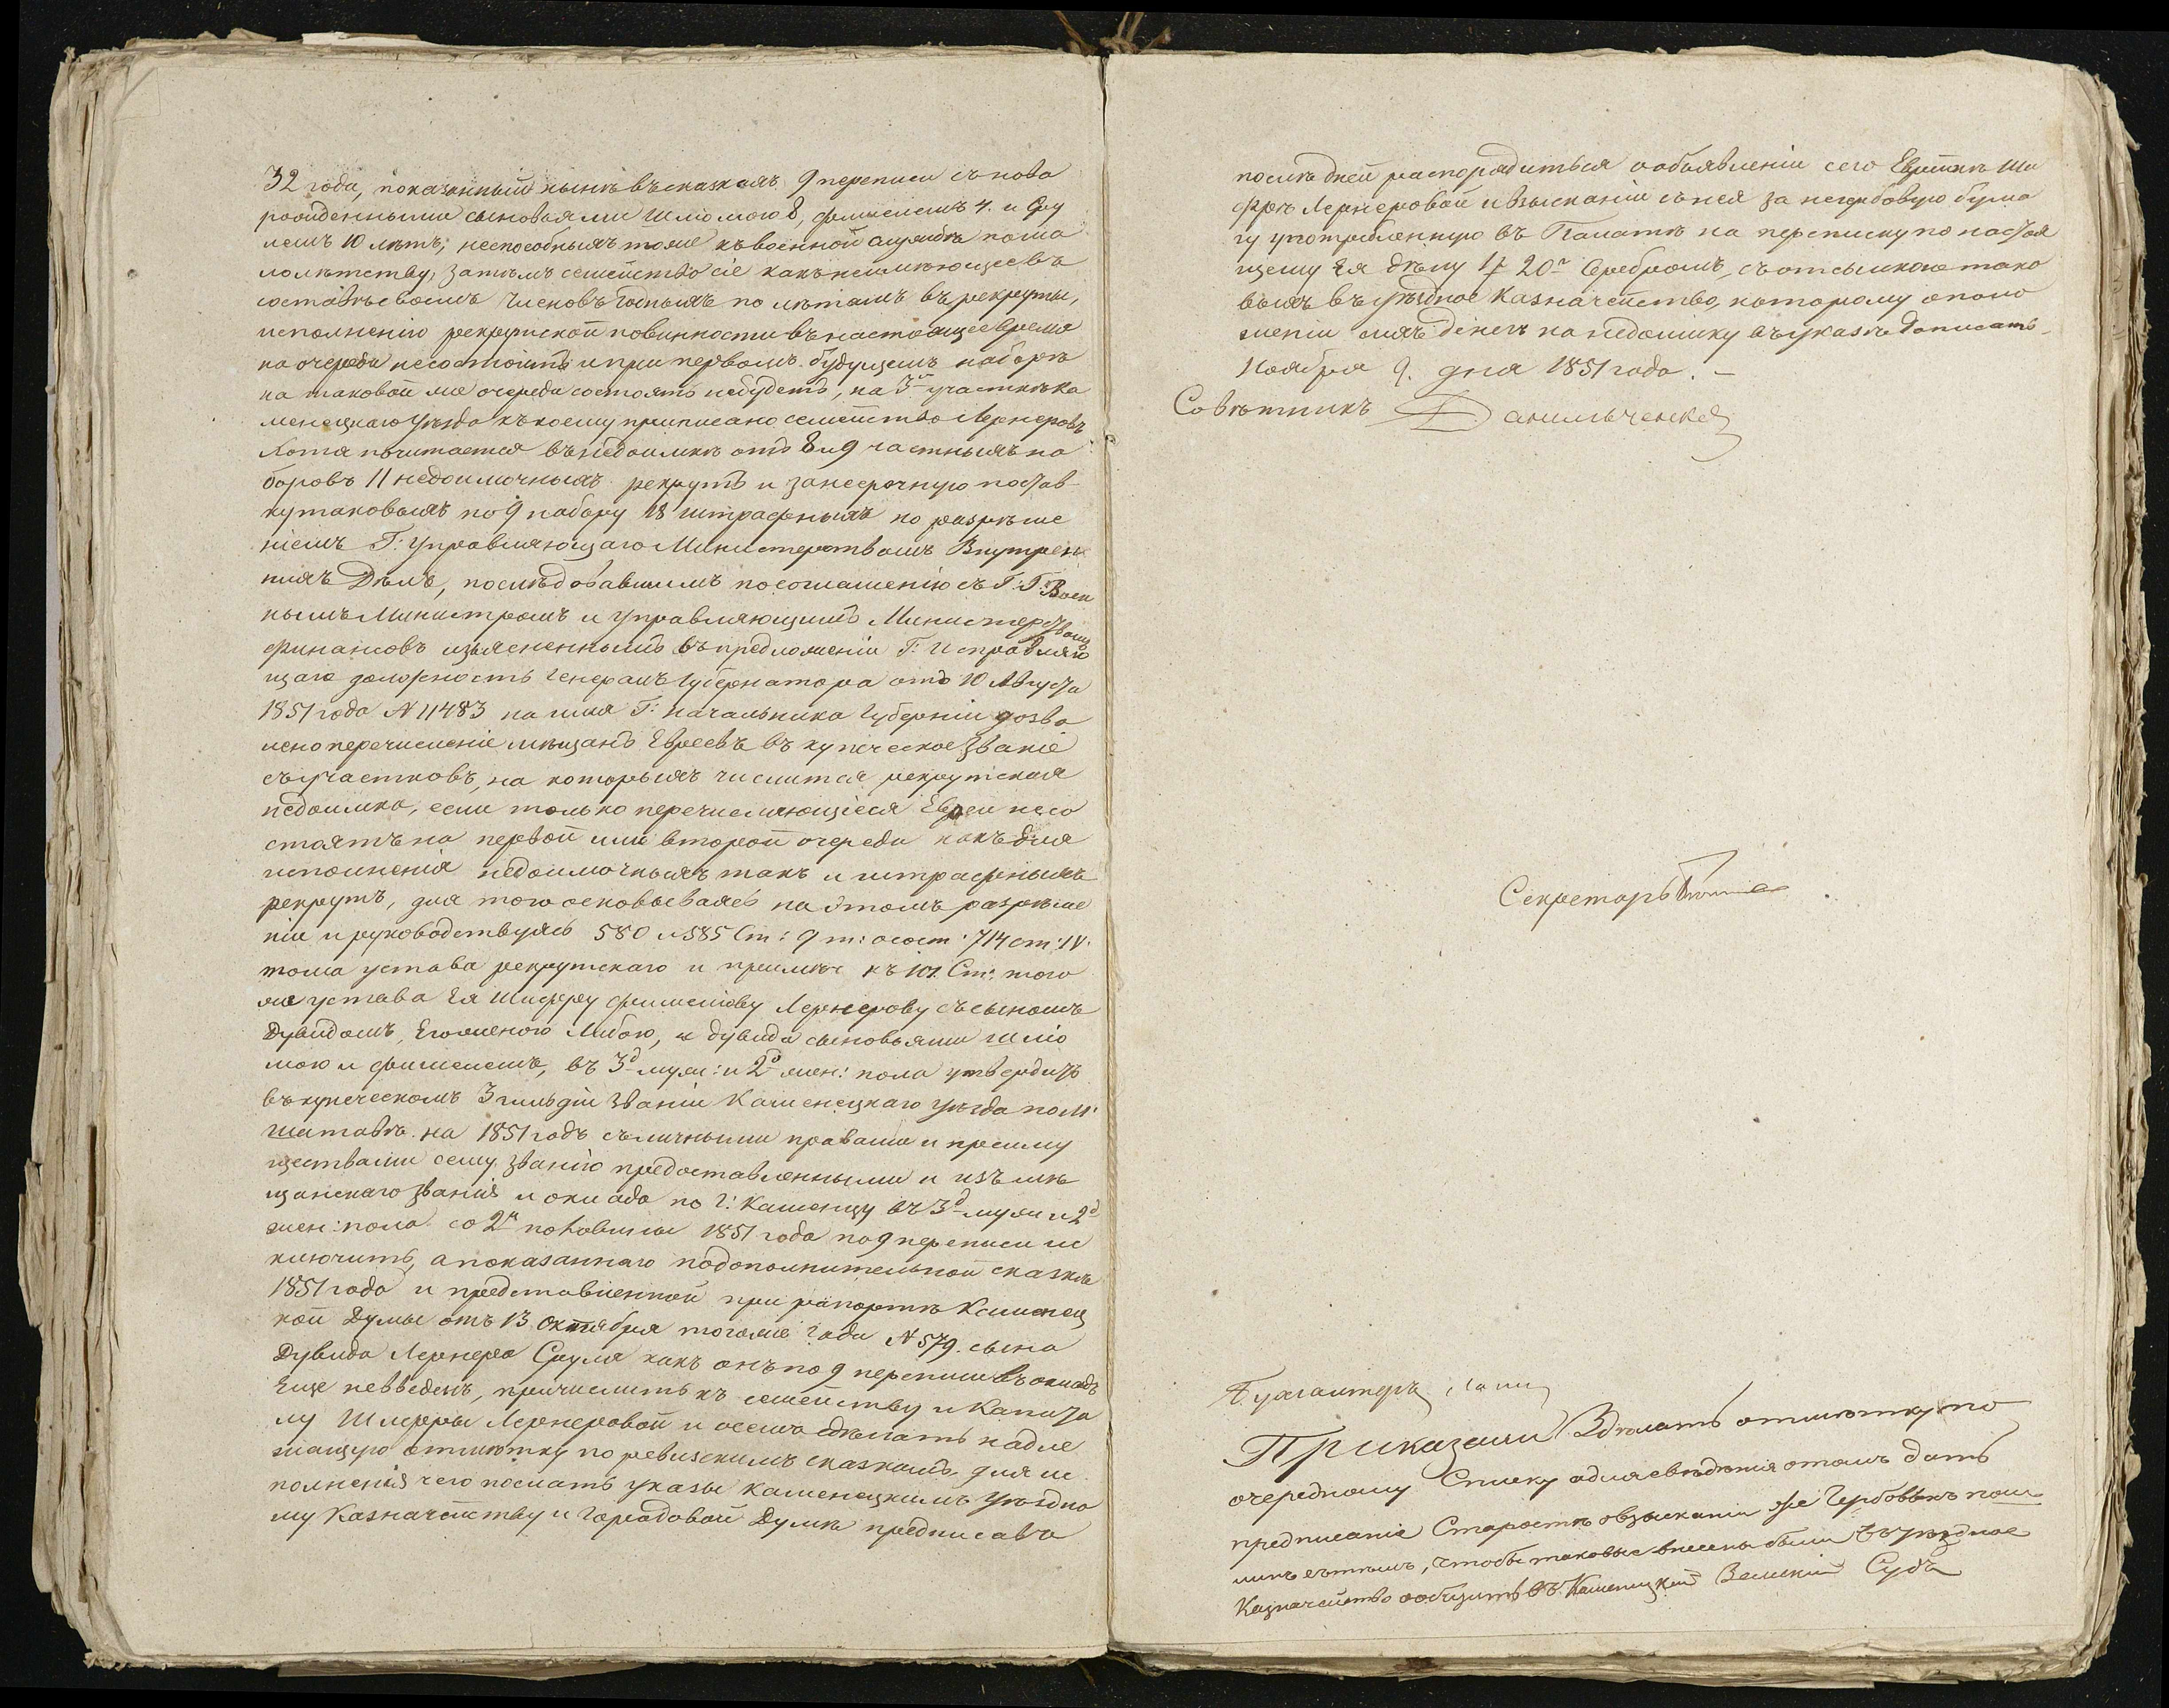 32 года, показанный нынѣ въ сказкахъ 9 переписи съ нова
рожденными сыновьями Шліомою 8, Фишелемъ 4. и Сру
лемъ 10 лѣтъ; неспособныхъ тоже къ военной службѣ по ма
лолѣтству, затѣмъ семейство сіе какъ неимѣющее въ
составѣ своемъ членовъ годныхъ по лѣтамъ въ рекруты,
исполненію рекрутской повинности въ настоящее время
на очереди несостоитъ и при первомъ будущемъ наборѣ
на таковой же очереди состоять небудетъ, на 3м участкѣ Ка
менецкаго уѣзда къ коему приписано семейство Лернеровъ
Хотя почитается въ недоимкѣ отъ 8 и 9 частныхъ на
боровъ 11 недоимочныхъ рекрутъ и занесрочную постав
ку таковыхъ по 9 набору 18 штрафныхъ но разрѣше
ніемъ Г: Управляющаго Министерствомъ Внутрен
нихъ Дѣлъ, послѣдовавшимъ по соглашенію съ Г.Г. Воен
нымъ Министромъ и Управляющимъ Министерствомъ
Финансовъ изъясненнымъ въ предложеніи Г: Исправляю
щаго должность Генералъ Губернатора отъ 10 Августа
1851 года N 11483 на имя Г: Начальника Губерніи дозво
лено перечисленіе мѣщанъ Евреевъ въ купеческое званіе
съ участковъ, на которыхъ числится рекрутская
недоимка, если только перечисляющіеся Евреи несо
стоятъ на первой или второй очереди какъ для
исполненія недоимочныхъ такъ и штрафныхъ
рекрутъ, для того основываясь на этомъ разрѣше
ніи и руководствуясь 580 и 585 Ст: 9 т: о сост: 714 ст: IV.
тома устава рекрутскаго и примѣч къ 101. Ст: того
же устава Ея Шифру Фишелеву Лернерову съ сыномъ
Дувидомъ, Его женою Либою, и Дувида сыновьями Шліо
мою и Фишелемъ, въ 3д муж: и 2д жен: пола утвердить
въ купеческомъ 3 гильдіи званіи Каменецкаго уѣзда по М:
Шатавѣ на 1851 годъ съ личными правами и преиму
ществами сему званію предоставленными и изъ мѣ
щанскаго званія и оклада по г: Каменцу въ 3д муж и 2д
жен: пола со 2й половины 1851 года по 9 переписи ис
ключить, а показаннаго по дополнительной сказкѣ
1851 года и представленной при рапортѣ Каменец
кой Думы отъ 13 Октября тогоже года N 579. сына
Дувида Лернера Сруля какъ онъ по 9 переписи въ окладъ
Еще невведенъ, причислить къ семейству и Капита
лу Шифры Лернеровой и о семъ сдѣлать надле
жащую отмѣтку по ревизскимъ сказкамъ, для ис
полненія чего послать указы Каменецкимъ Уѣздно
му Казначейству и Городовой Думѣ предписавъ
послѣдней распорядиться о объявленіи сего Еврейкѣ Ши
фрѣ Лернеровой и взысканіи съ нея за негербовую бума
гу употребленную въ Палатѣ на переписку по настоя
щему Ея дѣлу 1р 20к Серебромъ, съ отсылкою тако
выхъ въ Уѣздное Казначейство, которому о поло
женіи сихъ денегъ на недоимку въ указѣ дописать.
Ноября 9. дня 1851 года. –
Совѣтникъ Данильченко
Секретарь
Бухгалтеръ
Приказали Здѣлать отмѣтку по
очередному Списку а для свѣдѣнія о томъ дать
предписаніе Старостѣ о взысканіи же Гербовыхъ пош
линъ съ тѣмъ, чтобы таковые внесены были въ уѣздное
Казначейство сообщить въ Каменецкій Земскій Судъ